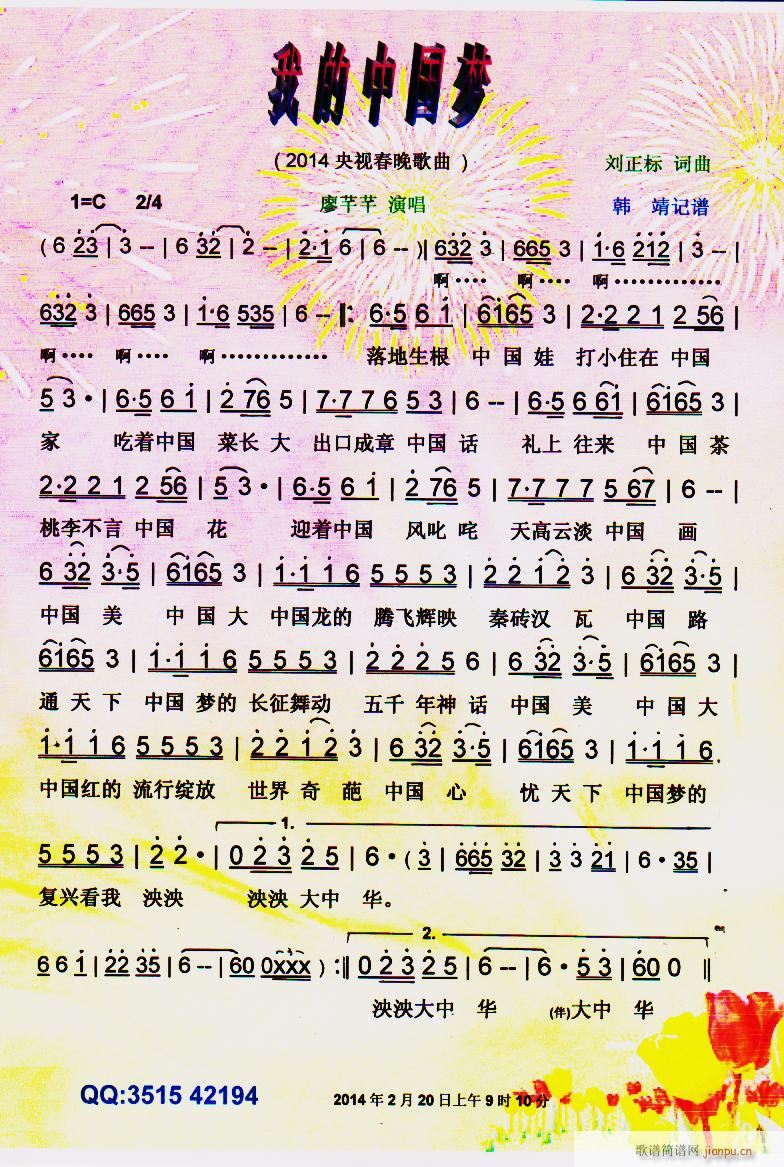 我的中国梦
(2014央视春晚歌曲) 刘正标 词曲
1=C 2/4 廖芊芊 演唱 韩 靖记谱
( 6 2̇3̇ | 3̇ -- | 6 3̇2̇ | 2̇ -- | 2̇·1̇ 6 | 6 -- )| 63̇2̇ 3̇ | 665 3 | 1̇·6 2̇1̇2̇ | 3̇ -- |
啊···· 啊···· 啊·············
63̇2̇ 3̇ | 665 3 | 1̇·6 535 | 6 -- |: 6·5 6 1̇ | 61̇65 3 | 2·2 2 1 2 56 |
啊···· 啊···· 啊············· 落地生根 中国娃 打小住在 中国
5 3 · | 6·5 6 1̇ | 2̇ 76 5 | 7·7 7 6 5 3 | 6 -- | 6·5 6 61̇ | 61̇65 3 |
家 吃着中国 菜长大 出口成章 中国话 礼上往来 中国茶
2·2 2 1 2 56 | 5 3 · | 6·5 6 1̇ | 2̇ 76 5 | 7·7 7 7 5 67 | 6 -- |
桃李不言 中国 花 迎着中国 风叱咤 天高云淡 中国 画
6 3̇2̇ 3̇·5̇ | 61̇65 3 | 1̇·1̇ 1̇ 6 5 5 5 3 | 2̇ 2̇ 1̇ 2̇ 3̇ | 6 3̇2̇ 3̇·5̇ |
中国 美 中国大 中国龙的 腾飞辉映 秦砖汉瓦 中国 路
61̇65 3 | 1̇·1̇ 1̇ 6 5 5 5 3 | 2̇ 2̇ 2̇ 5 6 | 6 3̇2̇ 3̇·5̇ | 61̇65 3 |
通天下 中国梦的 长征舞动 五千年神话 中国 美 中国大
1̇·1̇ 1̇ 6 5 5 5 3 | 2̇ 2̇ 1̇ 2̇ 3̇ | 6 3̇2̇ 3̇·5̇ | 61̇65 3 | 1̇·1̇ 1̇ 6
中国红的 流行绽放 世界奇葩 中国 心 忧天下 中国梦的
1.
5 5 5 3 | 2̇ 2̇ · | 0 2̇ 3̇ 2̇ 5 | 6 · ( 3̇ | 665 3̇2̇ | 3̇ 3̇ 2̇1̇ | 6 · 35 |
复兴看我 泱泱 泱泱 大中 华。
2.
6 6 1̇ | 2̇2̇ 3̇5̇ | 6 -- | 60 0xxx ) :‖ 0 2̇ 3̇ 2̇ 5 | 6 -- | 6 · 5̇ 3̇ | 60 0 ‖
泱泱大中 华 (伴)大中 华
QQ:3515 42194 2014年2月20日上午9时10分
歌谱简谱网 jianpu.cn